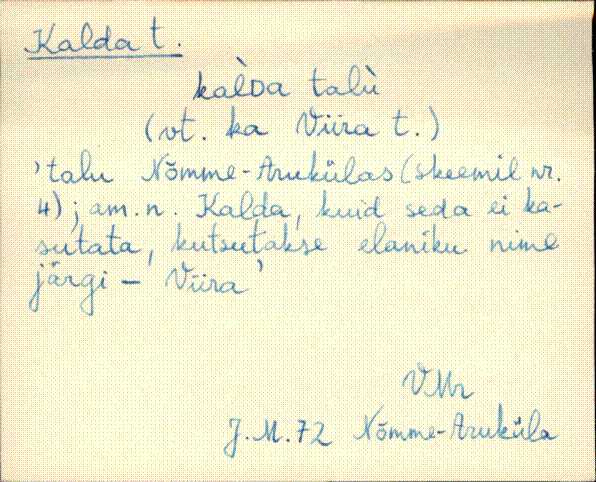 Kalda t.
kàlDa talù
(vt. ka Viira t.)
'talu Nõmme-Arukülas (skeemil nr.
4); am. n. Kalda, kuid seda ei ka-
sutata, kutsutakse elaniku nime
järgi – Viira'
VMr
J.M.72 Nõmme-Aruküla